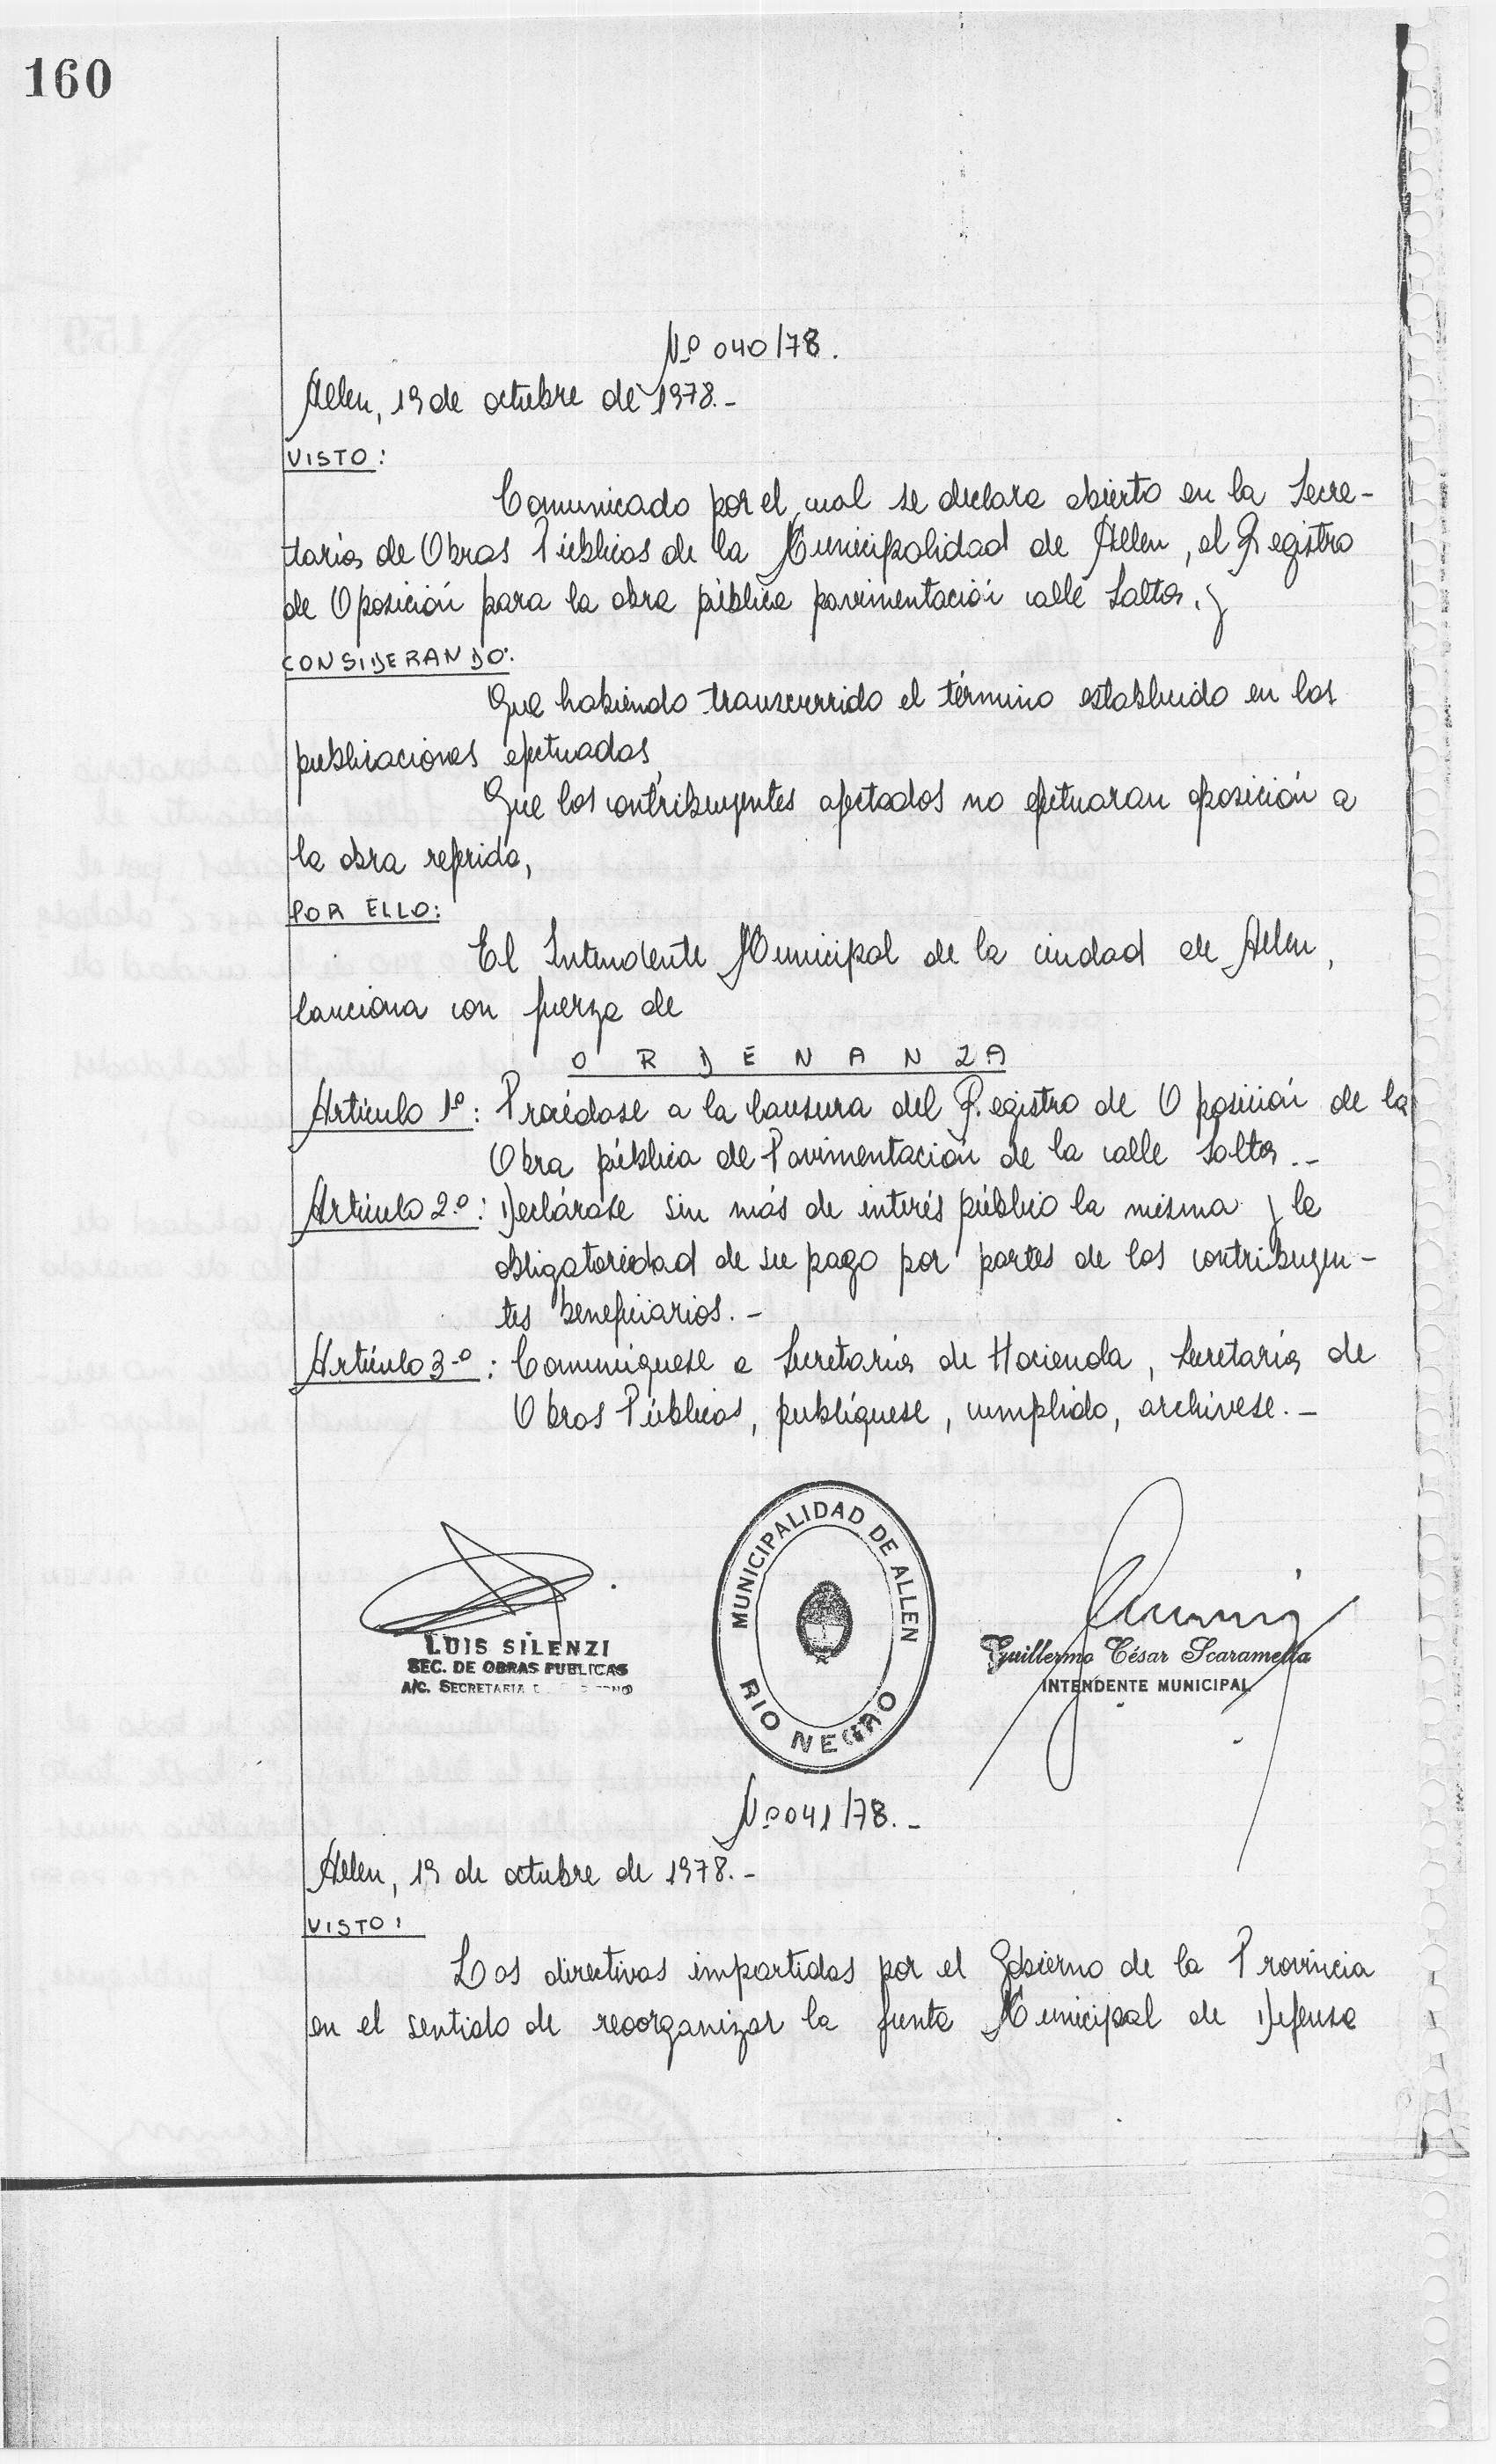 160
Nº 040/78.
Allen, 19 de octubre de 1978.-
VISTO:
Comunicado por el cual se declara abierto en la Secre-
taría de Obras Públicas de la Municipalidad de Allen, el Registro
de Oposición para la obra pública pavimentación calle Salta, y
CONSIDERANDO:
Que habiendo transcurrido el término establecido en las
publicaciones efectuadas,
Que los contribuyentes afectados no efectuaran oposición a
la obra referida,
POR ELLO:
El Intendente Municipal de la ciudad de Allen,
Sanciona con fuerza de
O R D E N A N Z A
Artículo 1º: Procédase a la clausura del Registro de Oposición de la
Obra pública de Pavimentación de la calle Salta.-
Artículo 2º: Declárase sin más de interés público la misma y la
obligatoriedad de su pago por partes de los contribuyen-
tes beneficiarios.-
Artículo 3º: Comuníquese a Secretaría de Hacienda, Secretaría de
Obras Públicas, publíquese, cumplido, archívese.-
LUIS SILENZI
SEC. DE OBRAS PUBLICAS
A/C. SECRETARIA
MUNICIPALIDAD DE ALLEN
RIO NEGRO
Guillermo César Scaramella
INTENDENTE MUNICIPAL
Nº 041/78.-
Allen, 19 de octubre de 1978.-
VISTO:
Las directivas impartidas por el Gobierno de la Provincia
en el sentido de reorganizar la Junta Municipal de Defensa